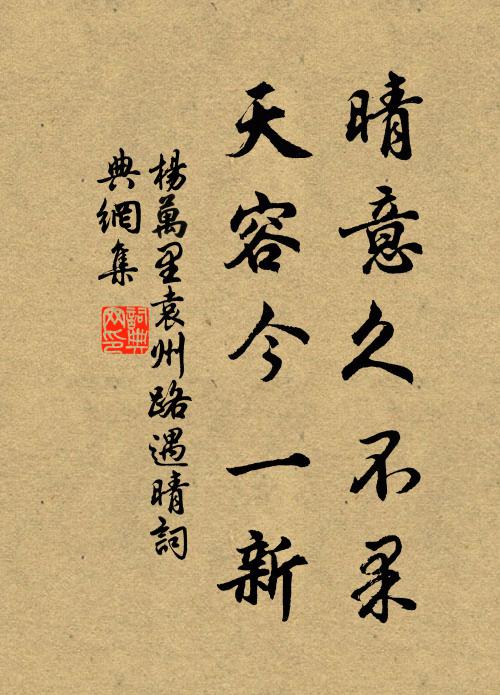 晴意久不果
天容今一新
楊萬里袁州路遇晴詞
典網集
詞典
网印